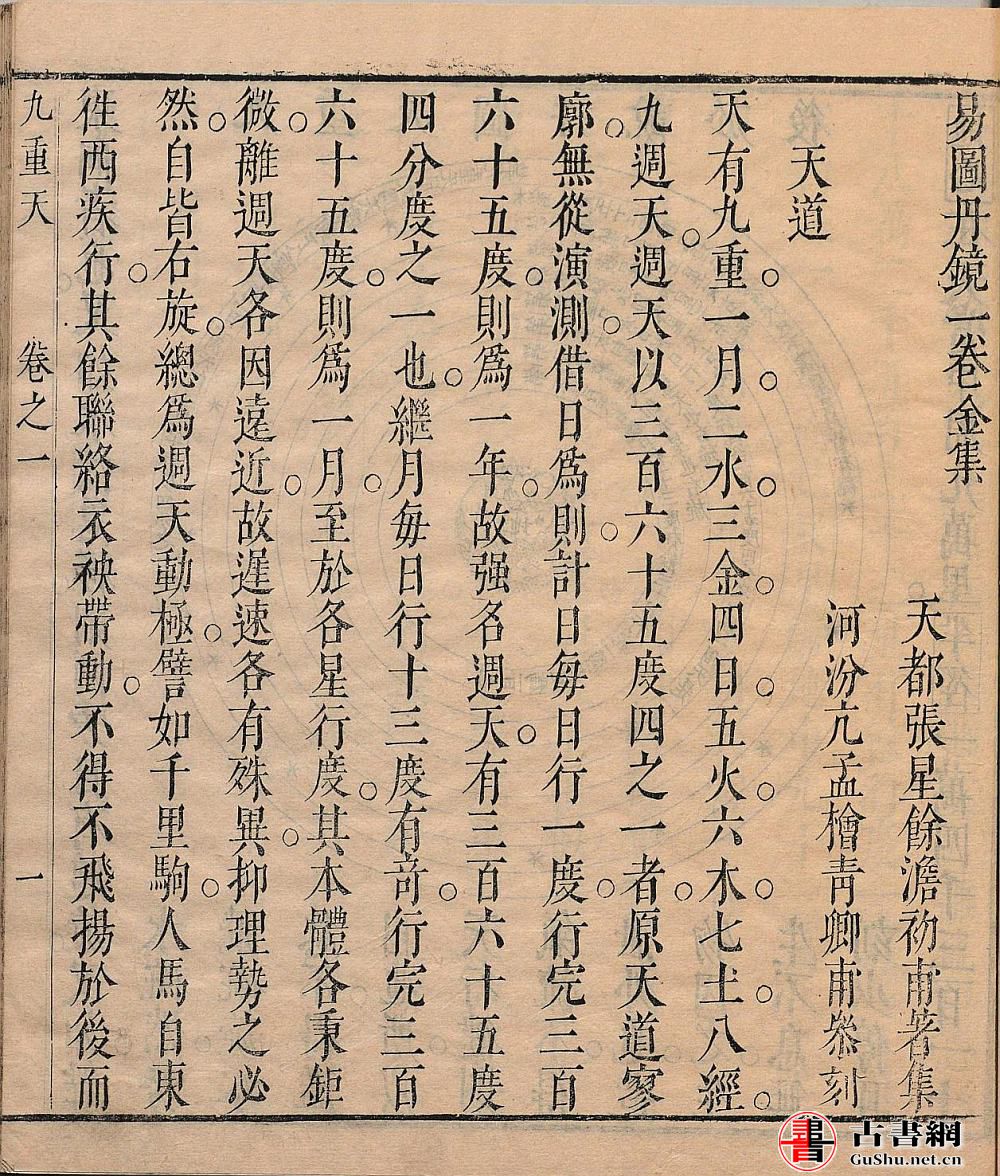 易圖丹鏡一卷金集
天都張星餘澹初甫著集
河汾亢孟檜青卿甫叅刻
天道
天有九重一月二水三金四日五火六木七土八經
九週天週天以三百六十五度四之一者原天道寥
廓無從演測借日爲則計日每日行一度行完三百
六十五度則爲一年故强名週天有三百六十五度
四分度之一也繼月每日行十三度有竒行完三百
六十五度則爲一月至於各星行度其本體各秉鉅
微離週天各因遠近故遲速各有殊異抑理勢之必
然自皆右旋總爲週天動極譬如千里駒人馬自東
徃西疾行其餘聯絡衣袂帶動不得不飛揚於後而
九重天 卷之一 一
古書網
GuShu.net.cn